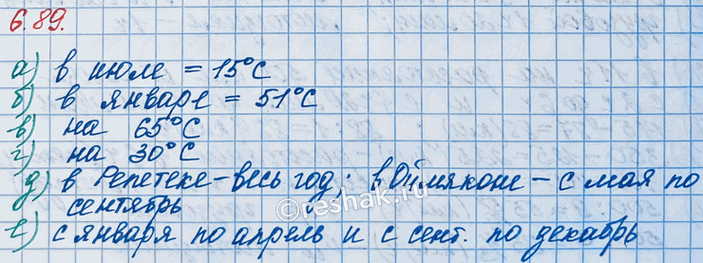 6.89.
а) в июле = 15°С
б) в январе = 51°С
в) на 65°С
г) на 30°С
д) в Репетеке - весь год; в Оймяконе - с мая по
сентябрь
©reshak.ru
е) с января по апрель и с сент. по декабрь